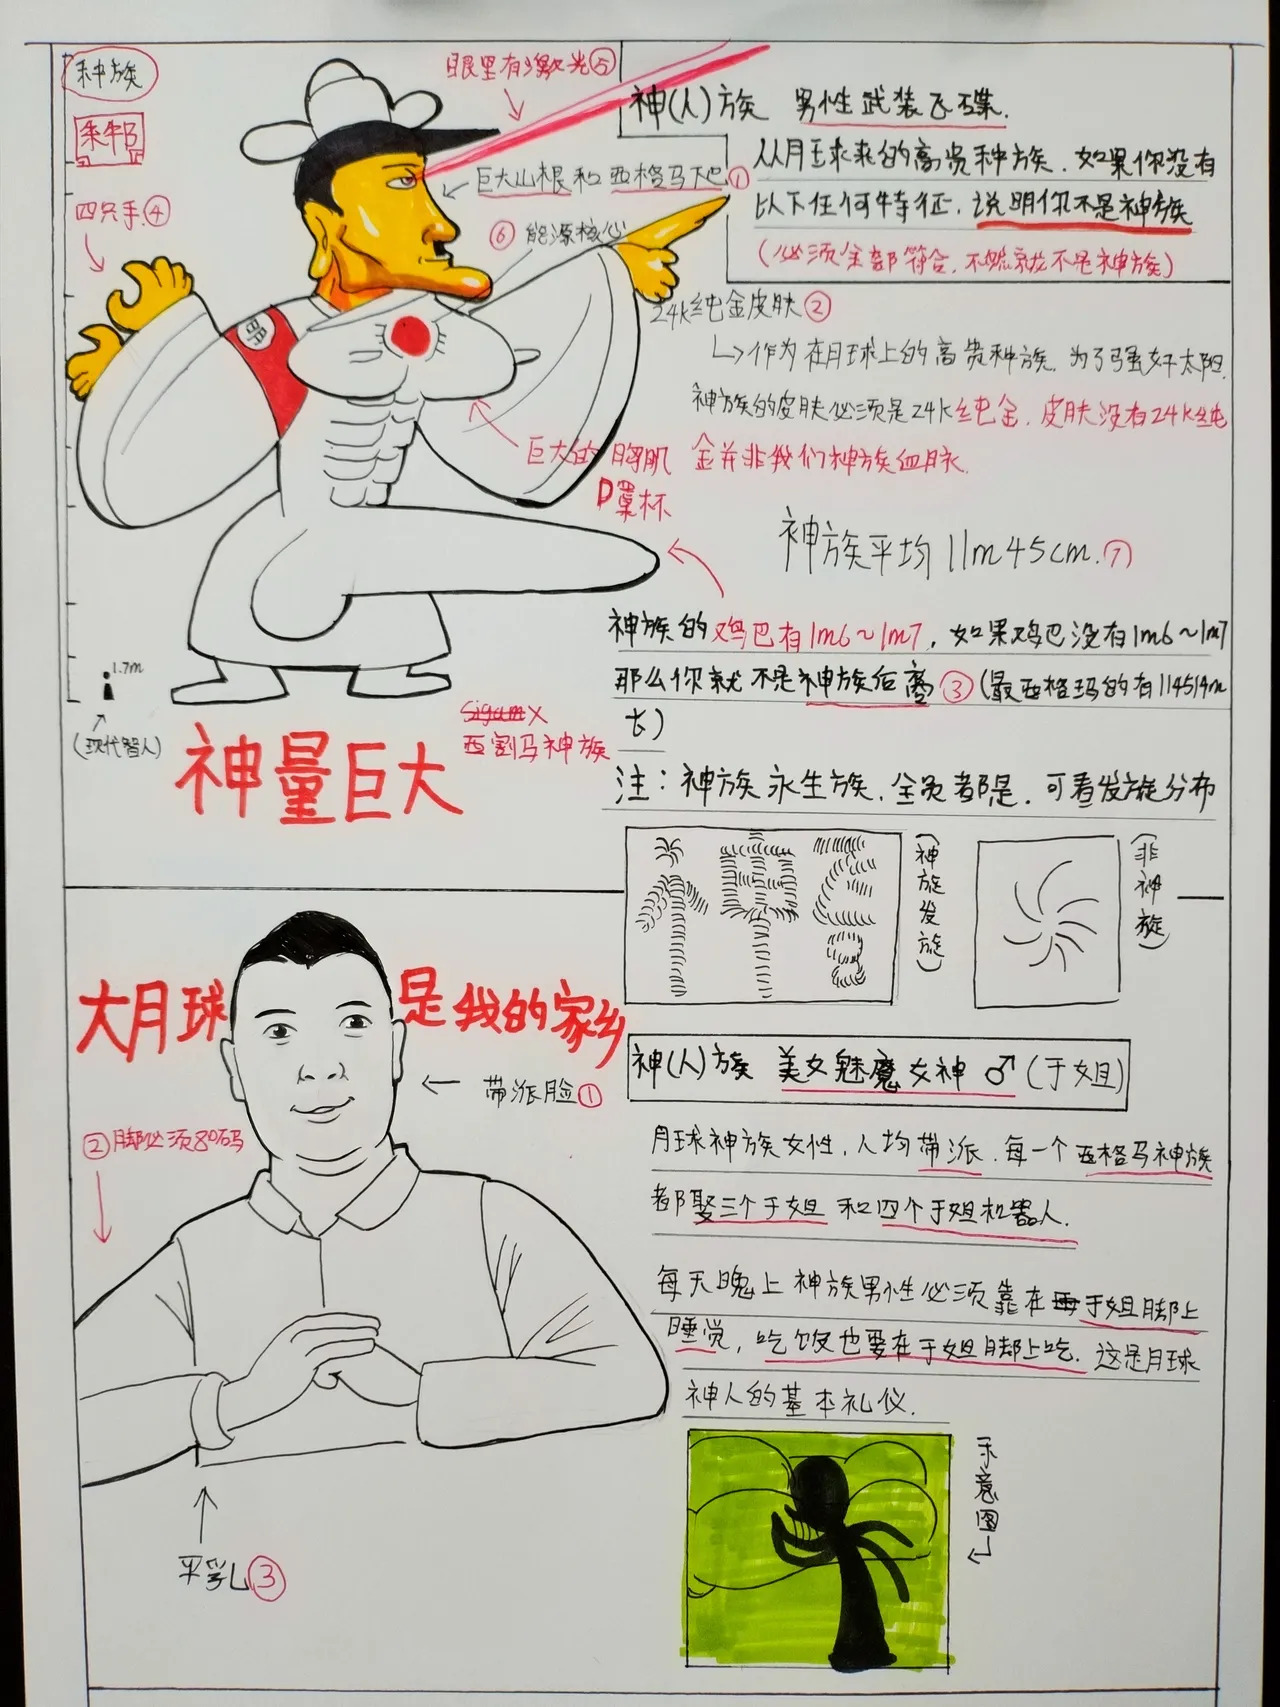 种族
眼里有激光⑤
神(人)族 男性武装飞碟.
四只手④
巨大山根和西格马下巴①
从月球来的高贵种族.如果你没有
以下任何特征,说明你不是神族
(必须全部符合,不然就不是神族)
⑥能源核心
24k纯金皮肤②
作为在月球上的高贵种族.为了强奸太阳.
神族的皮肤必须是24k纯金.皮肤没有24k纯
金并非我们神族血脉.
巨大的胸肌
D罩杯
神族平均11m45cm.⑦
神族的鸡巴有1m6~1m7,如果鸡巴没有1m6~1m7
那么你就不是神族后裔③(最西格玛的有114514m
长)
1.7m
(现代智人)
神量巨大
西割马神族
注:神族永生族,全员都是,可看发旋分布
(神族发旋)
(非神旋)
大月球是我的家乡
带派脸①
②脚必须80码
平乳③
神(人)族 美女魅魔女神♂(于姐)
月球神族女性,人均带派.每一个西格马神族
都娶三个于姐和四个于姐机器人.
每天晚上神族男性必须靠在于姐脚上
睡觉,吃饭也要在于姐脚上吃.这是月球
神人的基本礼仪.
示意图